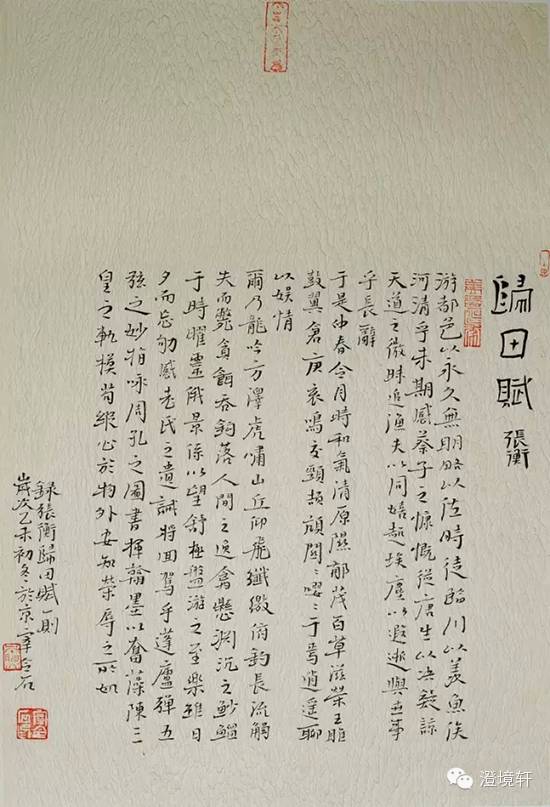 歸田賦
張衡
游都邑以永久無明略以佐時徒臨川以羡魚俟
河清乎未期感蔡子之慷慨從唐生以决疑諒
天道之微昧追漁夫以同嬉超埃塵以遐逝與世事
乎長辭
于是仲春令月時和氣清原隰郁茂百草滋榮王雎
鼓翼倉庚哀鳴交頸頡頏關〻嚶〻于焉逍遥聊
以娱情
爾乃龍吟方澤虎嘯山丘仰飛纖繳俯釣長流觸
失而斃貪餌吞鈎落人間之逸禽懸淵沉之魦鰡
于時曜靈俄景係以望舒極盤游之至樂雖日
夕而忘劬感老氏之遺誡將回駕乎蓬廬彈五
弦之妙指咏周孔之圖書揮翰墨以奮藻陳三
皇之軌模苟縱心於物外安知榮辱之所如
録張衡歸田賦一則
歲次乙未初冬於京
澄境轩